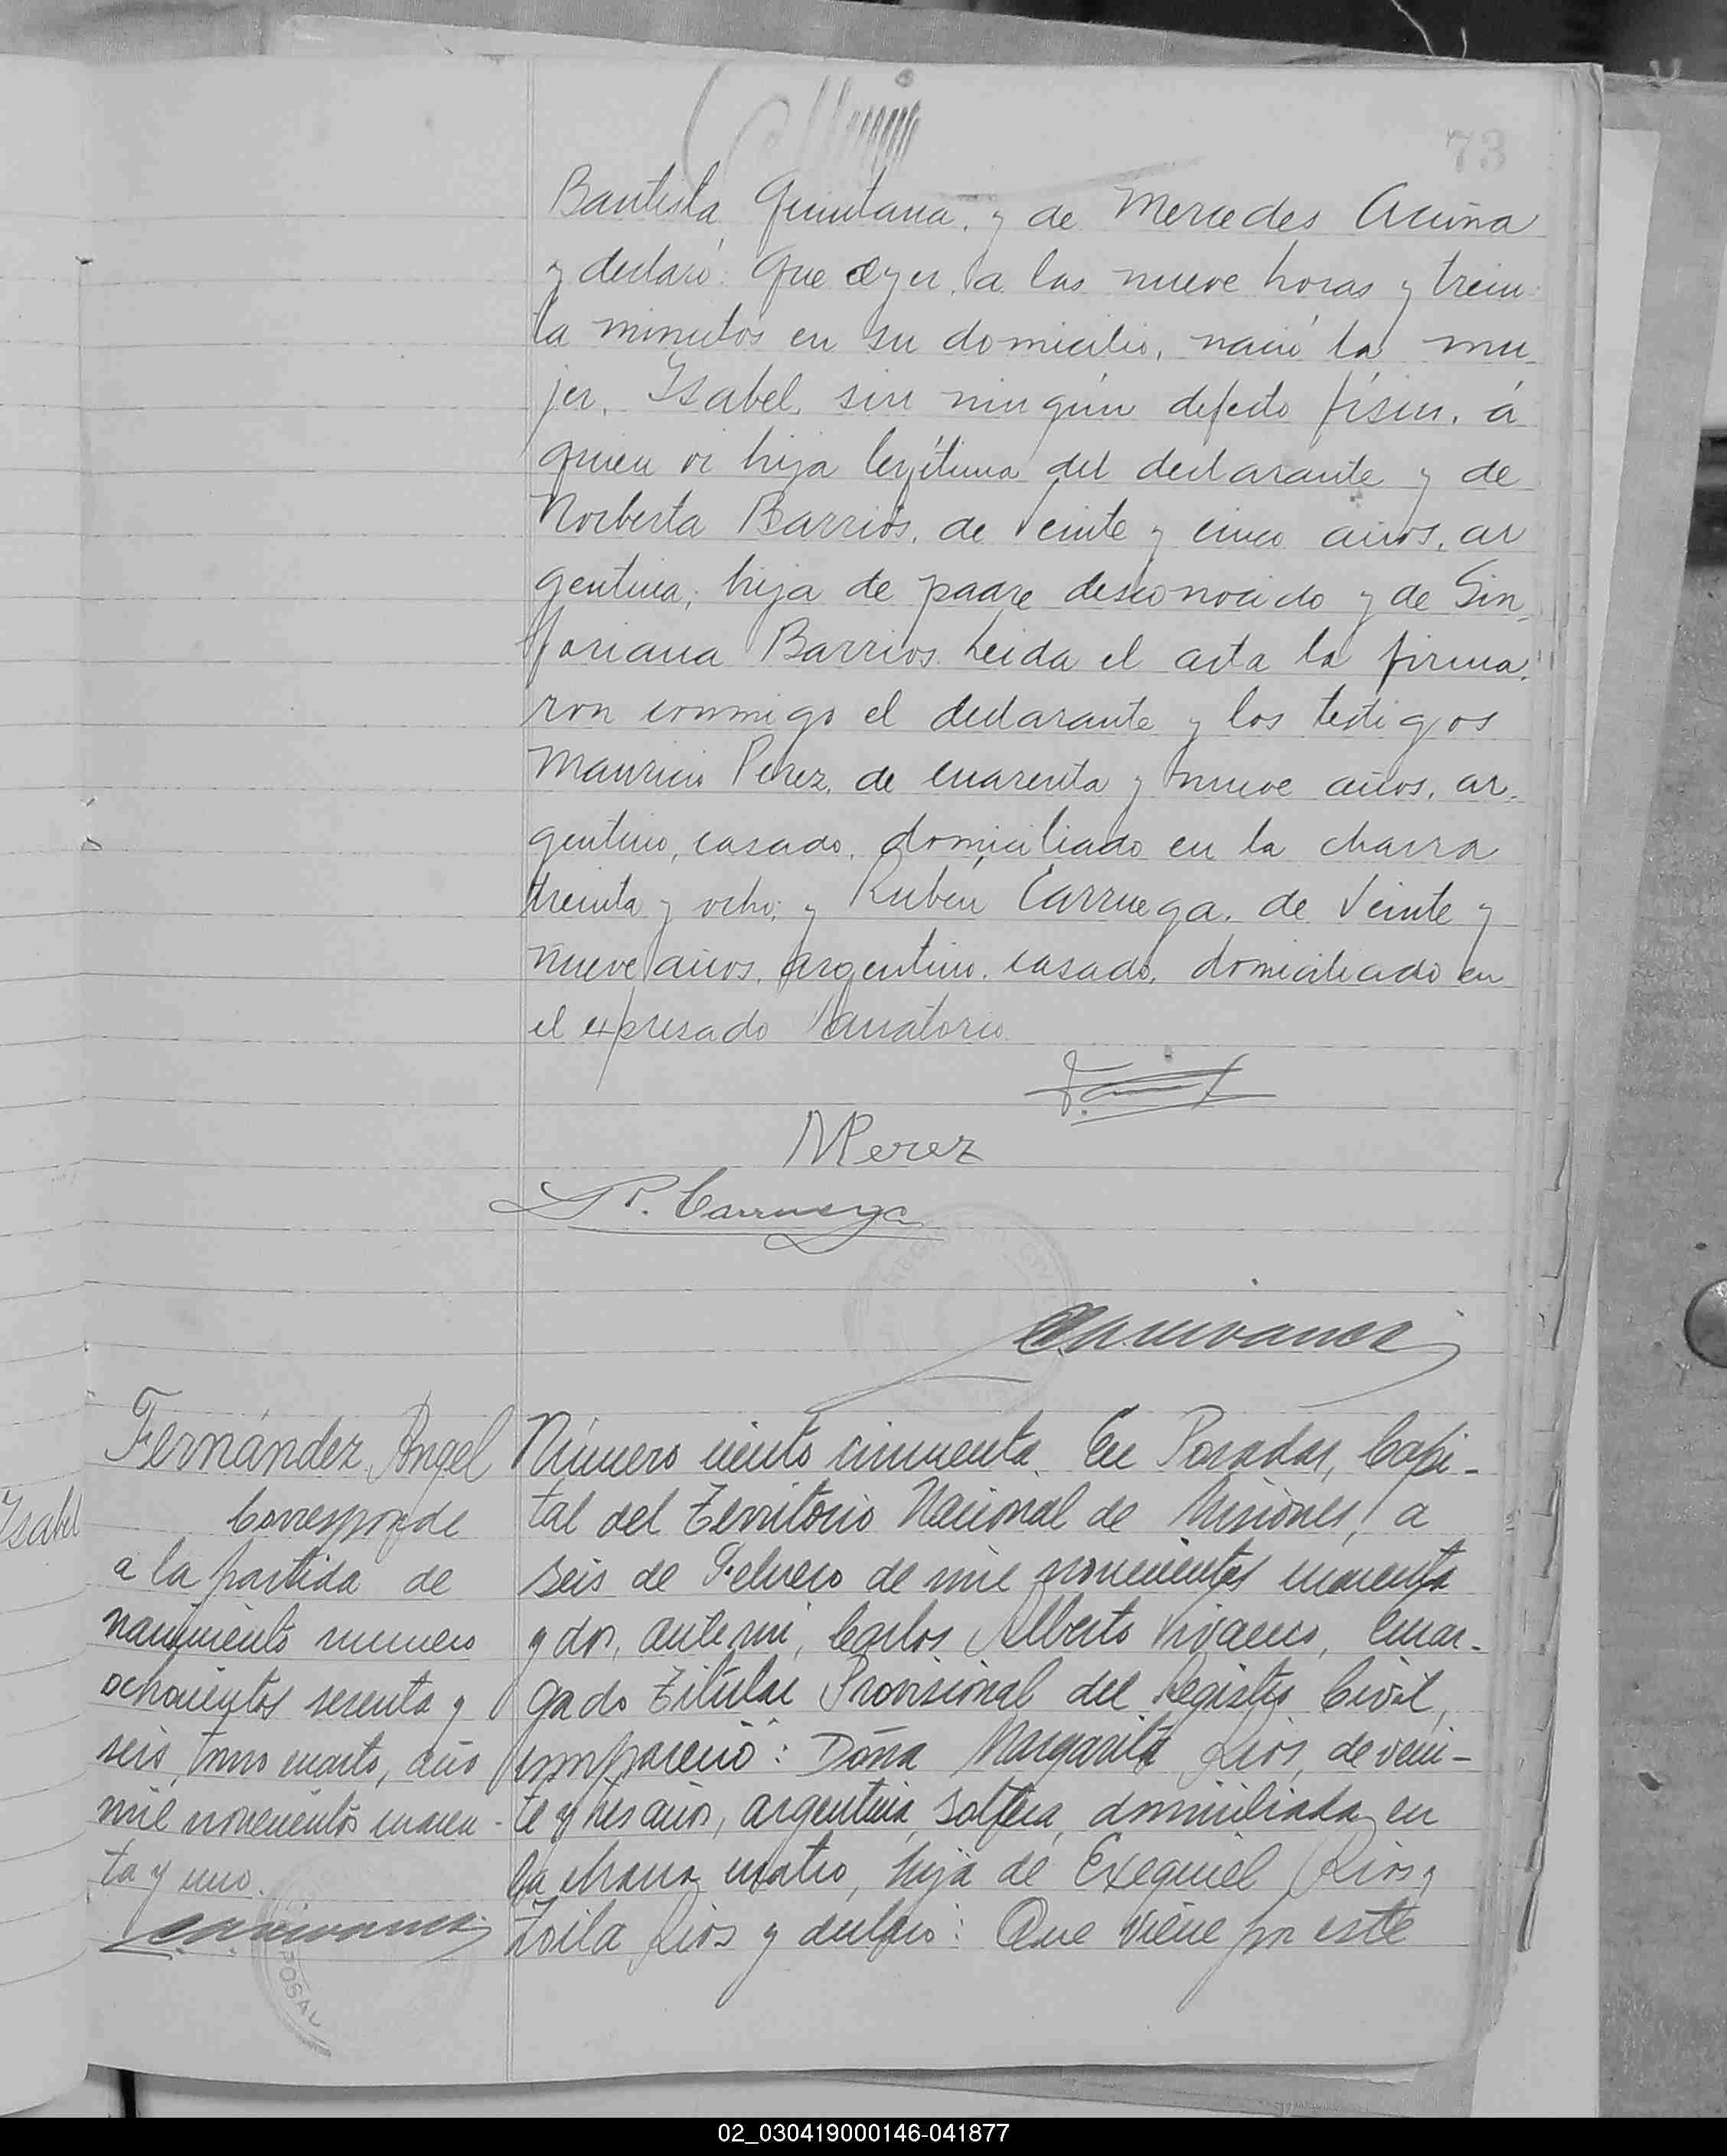 73
Bautista Quintana, y de Mercedes Acuña
y declaró: Que ayer, a las nueve horas y trein
ta minutos en su domicilio, nació la mu
jer, Isabel, sin ningún defecto físico, á
quien vi hija legítima del declarante y de
Norberta Barrios, de veinte y cinco años, ar
gentina, hija de padre desconocido y de Sin
foriana Barrios. Leida el acta la firma
ron conmigo el declarante y los testigos
Mauricio Perez, de cuarenta y nueve años, ar
gentino, casado, domiciliado en la chacra
treinta y ocho; y Rubén Carruega, de veinte y
nueve años, argentino, casado, domiciliado en
el expresado Sanatorio.
MPerez
R. Carruega
CAVivanco
Fernández, Angel
Corresponde
a la partida de
nacimiento numero
ochocientos sesenta y
seis, tomo cuarto, año
mil novecientos cuaren-
ta y uno.
CAVivanco
POSAD
Isabel
Número ciento cincuenta. En Posadas, Capi-
tal del Territorio Nacional de Misiones, a
seis de Febrero de mil novecientos cuarenta
y dos, ante mi, Carlos Alberto Vivanco, Encar-
gado Titular Provisional del Registro Civil,
compareció: Doña Margarita Rios, de vein-
te y tres años, argentina, soltera, domiciliada en
la chacra cuatro, hija de Exequiel Rios y
Zoila Rios y declaró: Que viene por este
02_030419000146-041877